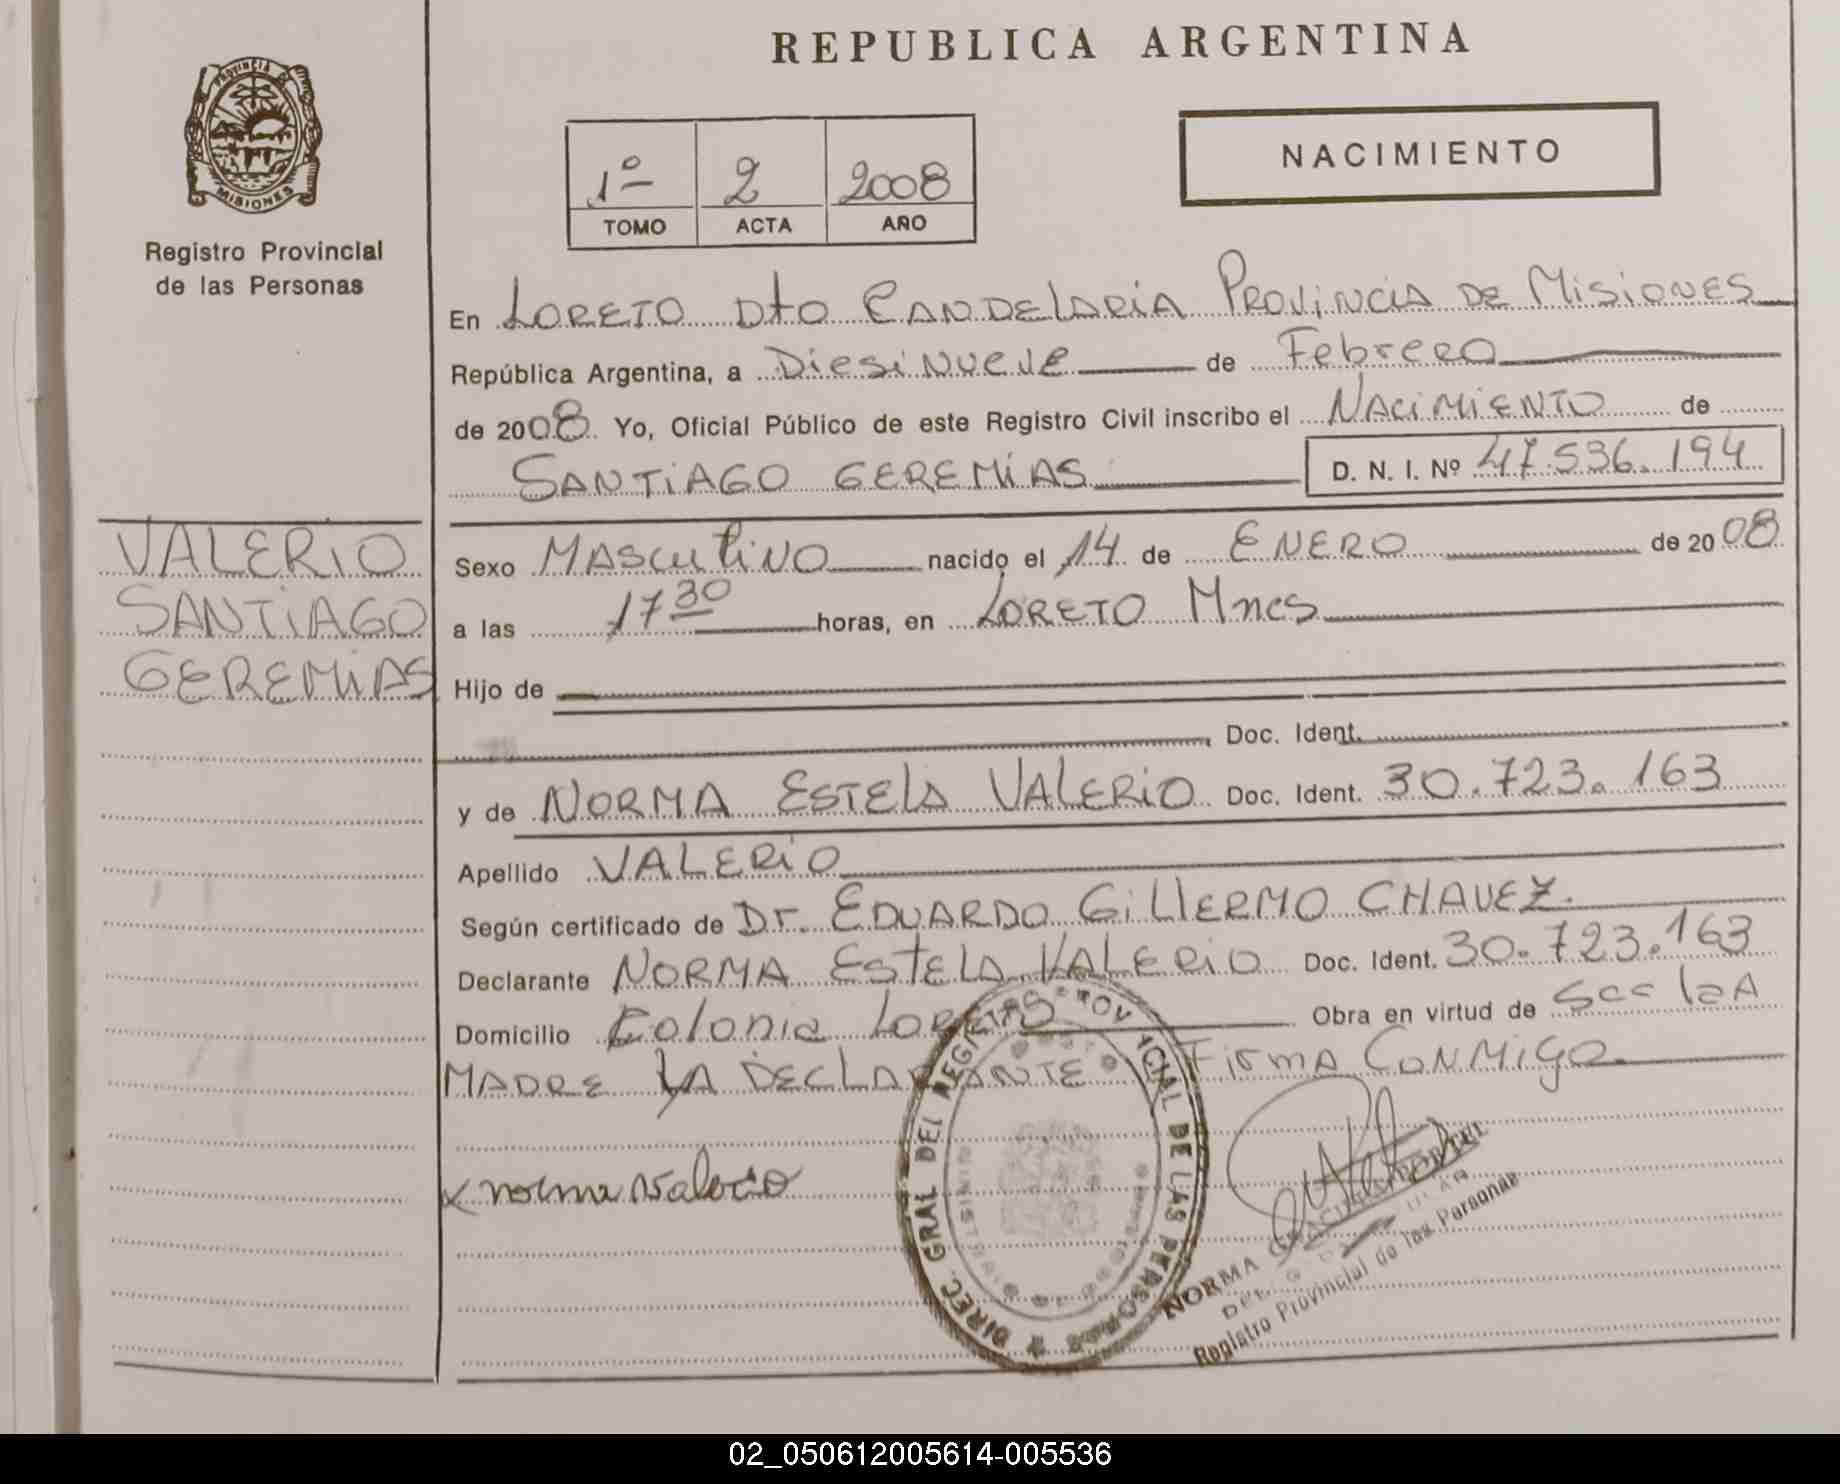 REPUBLICA ARGENTINA
PROVINCIA DE
MISIONES
Registro Provincial
de las Personas
1º
2
2008
TOMO
ACTA
AÑO
NACIMIENTO
En LORETO Dto CANDELARIA PROVINCIA DE MISIONES
República Argentina, a DiesiNueve de Febrero
de 2008 Yo, Oficial Público de este Registro Civil inscribo el NACIMIENTO de
SANTIAGO GEREMIAS D. N. I. Nº 47.536.194
VALERIO
SANTIAGO
GEREMIAS
Sexo MASCULINO nacido el 14 de ENERO de 2008
a las 17 30 horas, en LORETO Mnes
Hijo de
Doc. Ident.
y de NORMA ESTELA VALERIO Doc. Ident. 30.723.163
Apellido VALERIO
Según certificado de Dr. EDUARDO GILLERMO CHAVEZ.
Declarante NORMA ESTELA VALERIO Doc. Ident. 30.723.163
Domicilio Colonia LORETO Obra en virtud de
MADRE LA DECLARANTE Firma CONMIGO
x norma Valerio
DIREC. GRAL DEL REGISTRO PROVINCIAL DE LAS PERSONAS
NORMA
Registro Provincial de las Personas
02_050612005614-005536